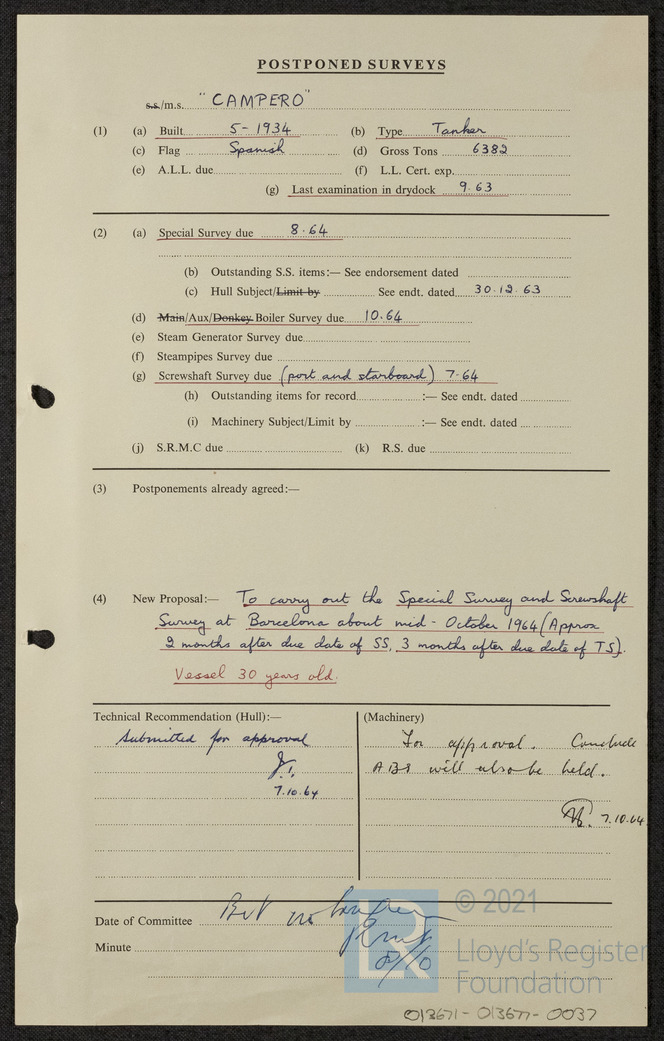 POSTPONED SURVEYS
s.s./m.s. "CAMPERO"
(1) (a) Built 5-1934 (b) Type Tanker
(c) Flag Spanish (d) Gross Tons 6382
(e) A.L.L. due (f) L.L. Cert. exp.
(g) Last examination in drydock 9.63
(2) (a) Special Survey due 8.64
(b) Outstanding S.S. items:— See endorsement dated
(c) Hull Subject/Limit by See endt. dated 30.12.63
(d) Main/Aux/Donkey Boiler Survey due 10.64
(e) Steam Generator Survey due
(f) Steampipes Survey due
(g) Screwshaft Survey due (port and starboard) 7.64
(h) Outstanding items for record :— See endt. dated
(i) Machinery Subject/Limit by :— See endt. dated
(j) S.R.M.C due (k) R.S. due
(3) Postponements already agreed:—
(4) New Proposal:— To carry out the Special Survey and Screwshaft
Survey at Barcelona about mid-October 1964 (Approx
2 months after due date of SS, 3 months after due date of TS).
Vessel 30 years old.
Technical Recommendation (Hull):— (Machinery)
Submitted for approval For approval. Conclude
ABS will also be held.
7.10.64
7.10.64
Date of Committee But no longer
Minute
© 2021
LR
Lloyd's Register
Foundation
013671-013677-0037